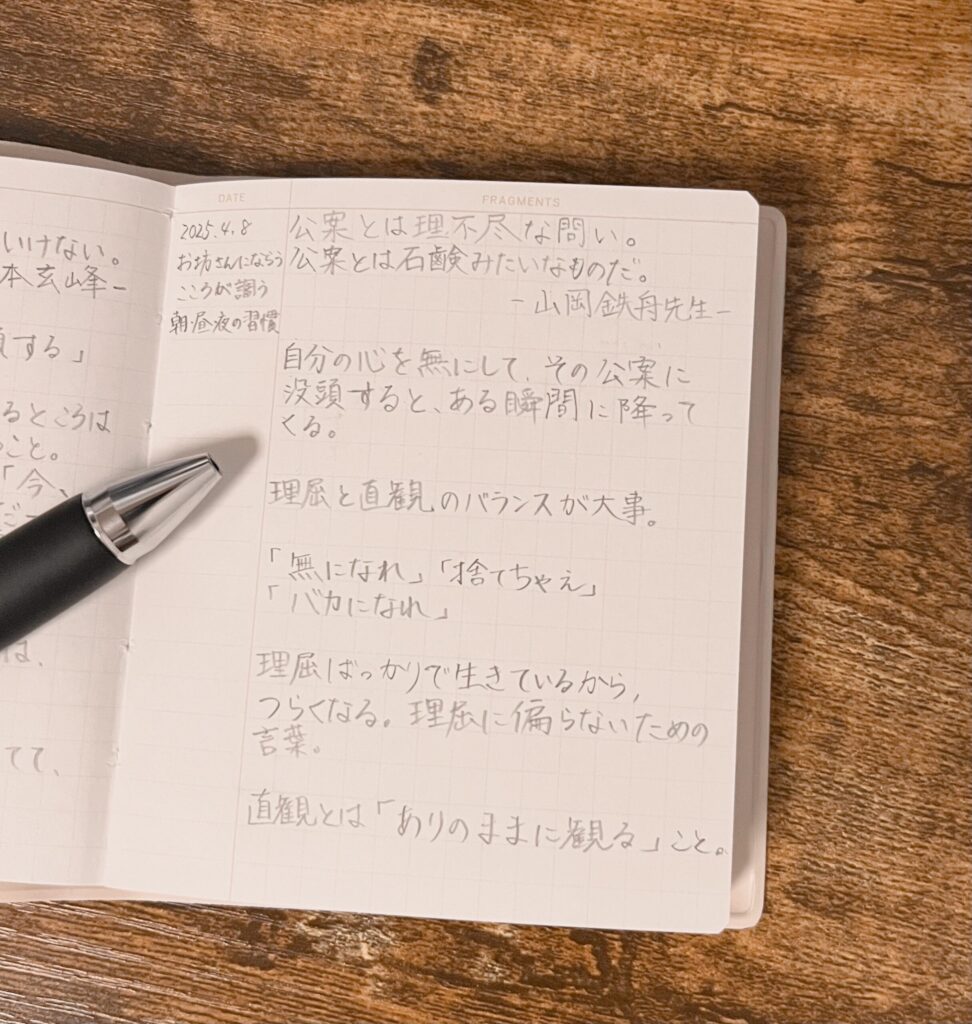 いけない。
本玄峰–
する」
るところは
こと。
「今、
は、
てて、
DATE
FRAGMENTS
2025.4.8
お坊さんにならう
こころが調う
朝・昼・夜の習慣
公案とは理不尽な問い。
公案とは石鹸みたいなものだ。
–山岡鉄舟先生–
自分の心を無にして、その公案に
没頭すると、ある瞬間に降って
くる。
理屈と直観のバランスが大事。
「無になれ」「捨てちゃえ」
「バカになれ」
理屈ばっかりで生きているから,
つらくなる。理屈に偏らないための
言葉。
直観とは「ありのままに観る」こと。